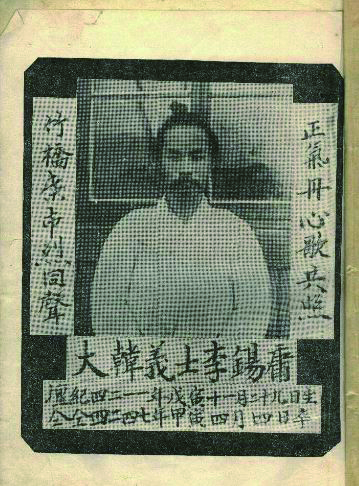 正氣丹心歌共照
竹橋柴市烈同聲
大韓義士李錫庸
檀紀四二一一年戊寅十一月二十九日生
仝仝四二四七年甲寅四月四日卒